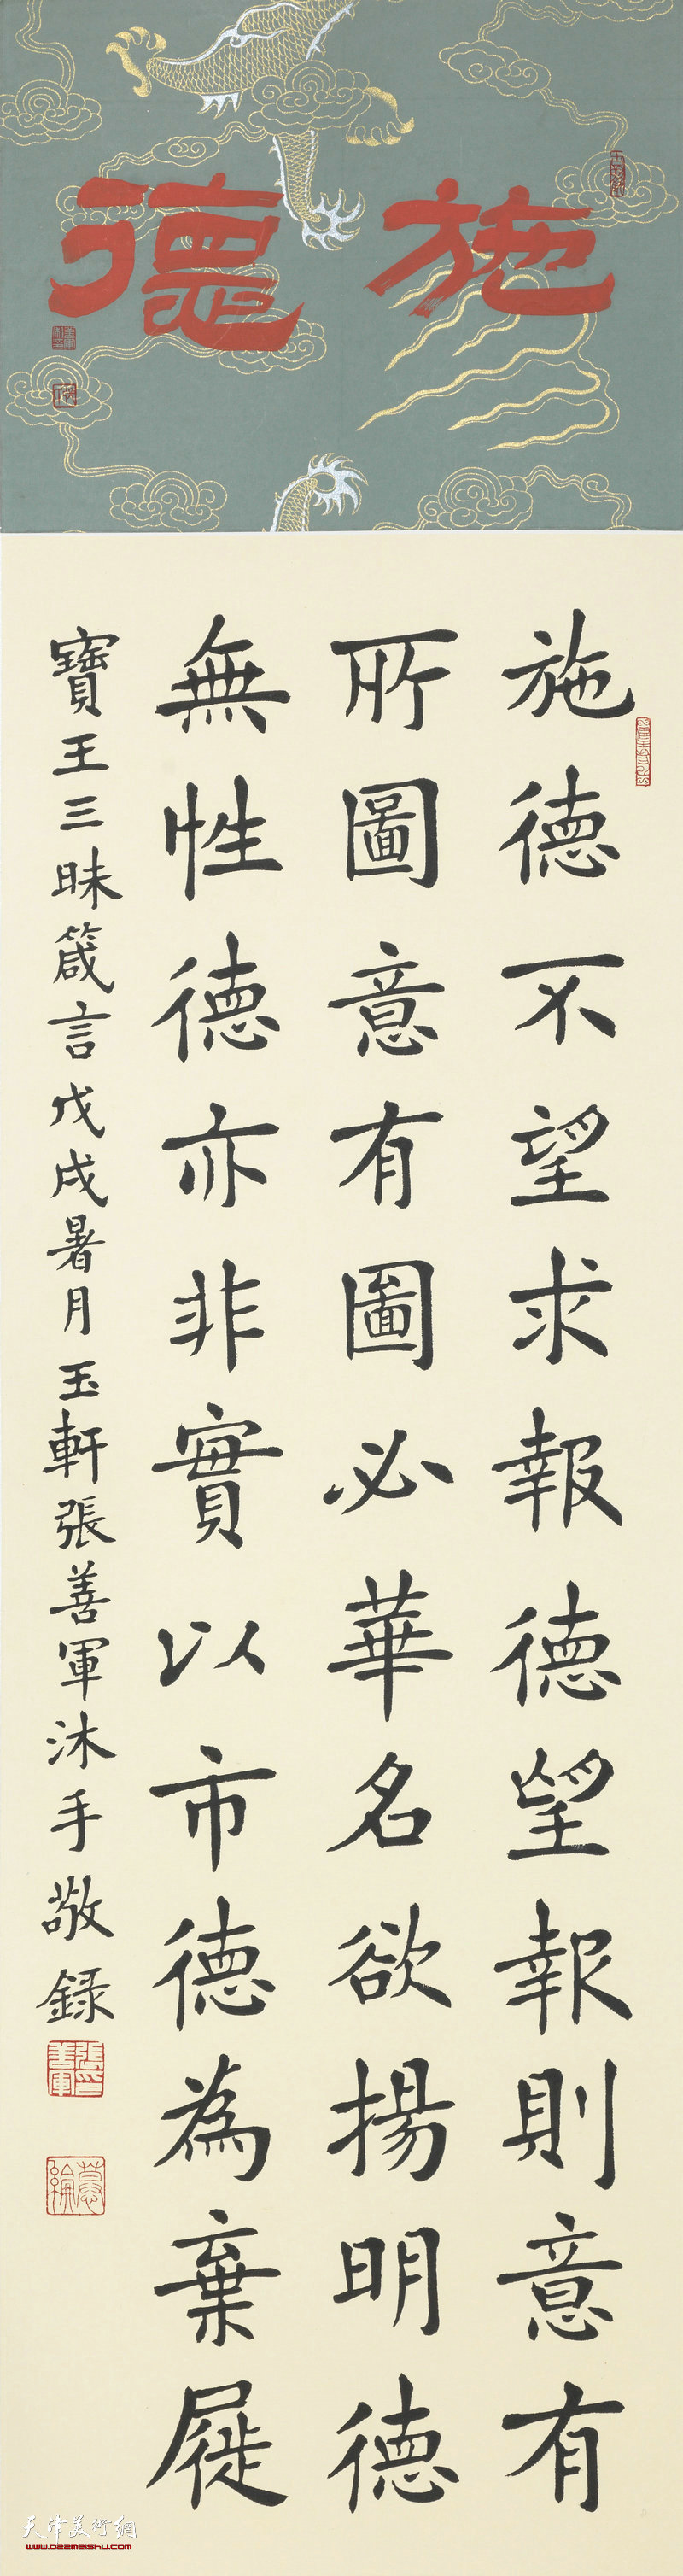 施德
施德不望求報德望報則意有
所圖意有圖必華名欲揚明德
無性德亦非實以市德為棄屣
寶王三昧箴言戊戌暑月玉軒張善軍沐手敬録
張善軍印
天津美術網
www.022meishu.com